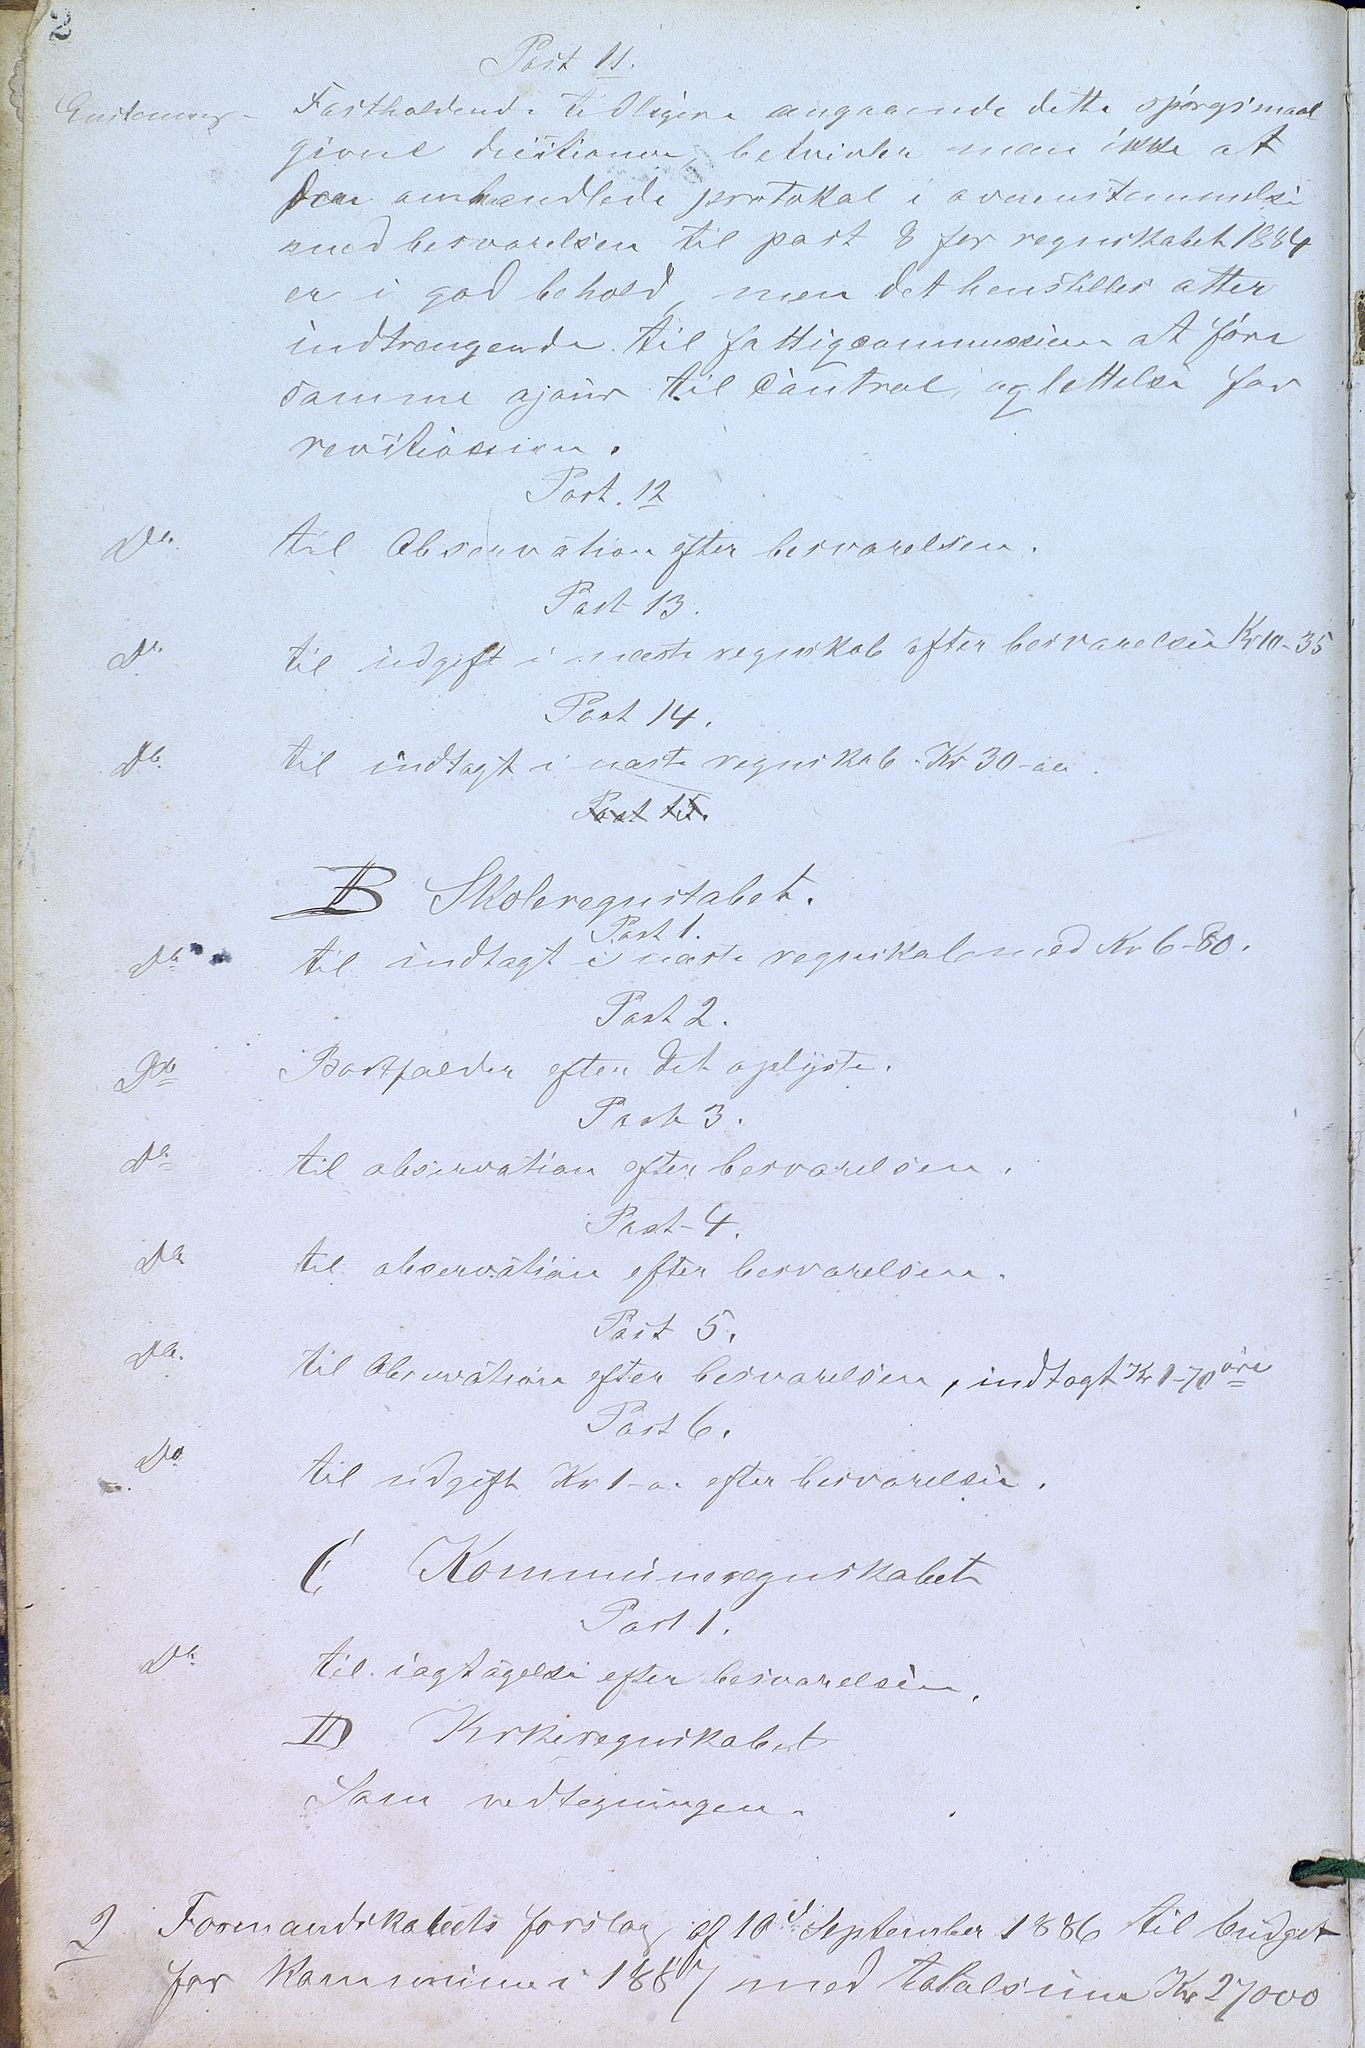 2
Post 11.
Enstemmig - Fastholdende tidligere angaaende dette spørgsmaal
givne desitioner, betvivler man ikke at
den omhandlede protokol i overenstemmelse
med besvarelsen til post 8 for regnskabet 1884
er i god behold, men det henstilles atter
indtrengende til fattigcommissionen at føre
samme ajour til Control og lettelse for
revitionen.
Post. 12
Do. til Observation efter besvarelsen.
Post 13.
Do. til udgift i næste regnskab efter besvarelsen Kr 10-35
Post 14.
Do. til indtægt i næste regnskab. Kr 30-
Post 15.
B Skoleregnskabet.
Post 1.
Do. til indtægt i næste regnskab med Kr 6-80.
Post 2.
Do. Bortfalder efter det oplyste.
Post 3.
Do. til observation efter besvarelsen.
Post-4.
Do til observation efter besvarelsen.
Post 5.
Do. til Observation efter besvarelsen, indtægt Kr 1-70 øre
Post 6.
Do til udgift Kr 1- efter besvarelsen.
C Kommuneregnskabet
Post 1.
Do. til iagtagelse efter besvarelsen.
D Kirkeregnskabet
Som vedtegningen.
2 Formandskabets forslag af 10d September 1886 til budget
for Kommunen i 1887 med totalsum Kr 27000